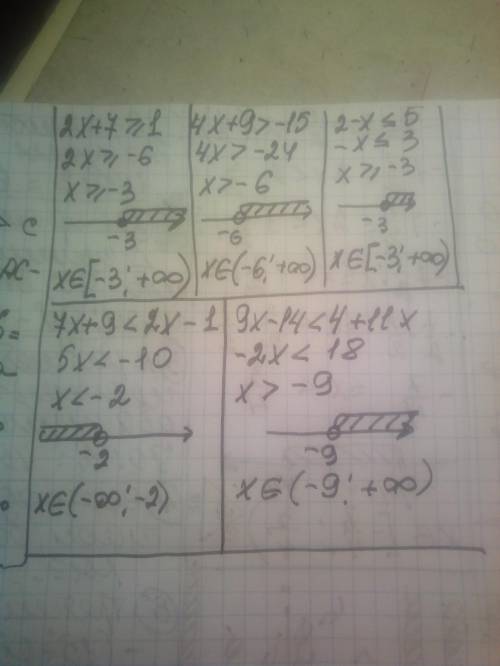 2x+7⩾1
2x⩾-6
x⩾-3
-3
x∈[-3;+∞)
4x+9>-15
4x>-24
x>-6
-6
x∈(-6;+∞)
2-x≤5
-x≤3
x⩾-3
-3
x∈[-3;+∞)
7x+9<2x-1
5x<-10
x<-2
-2
x∈(-∞;-2)
9x-14<4+11x
-2x<18
x>-9
-9
x∈(-9;+∞)